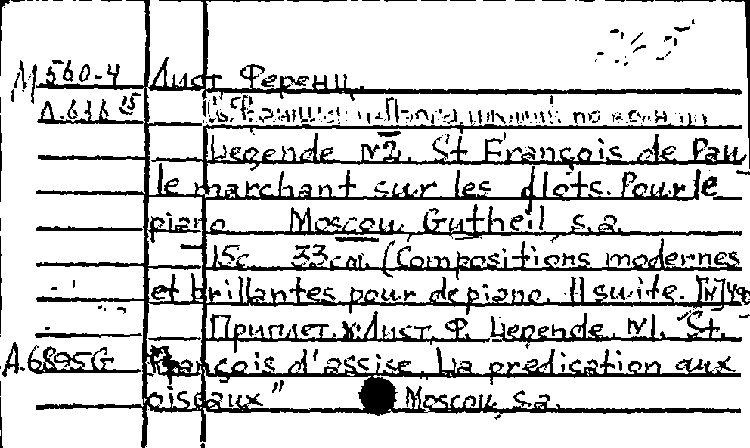 М560-4 Лист Ференц.
Л.636 25 по волнам
Legende №2. St François de Pau
le marchant sur les flots. Pour le
piano Moscou, Gutheil s.a.
15с. 33см. (Compositions modernes
et brillantes pour de piano. II suite. [№]
Приплет. к: Лист, Ф. Legende №1. St.
А.6895G François d'assise. La predication aux
oiseaux" Moscou, s.a.